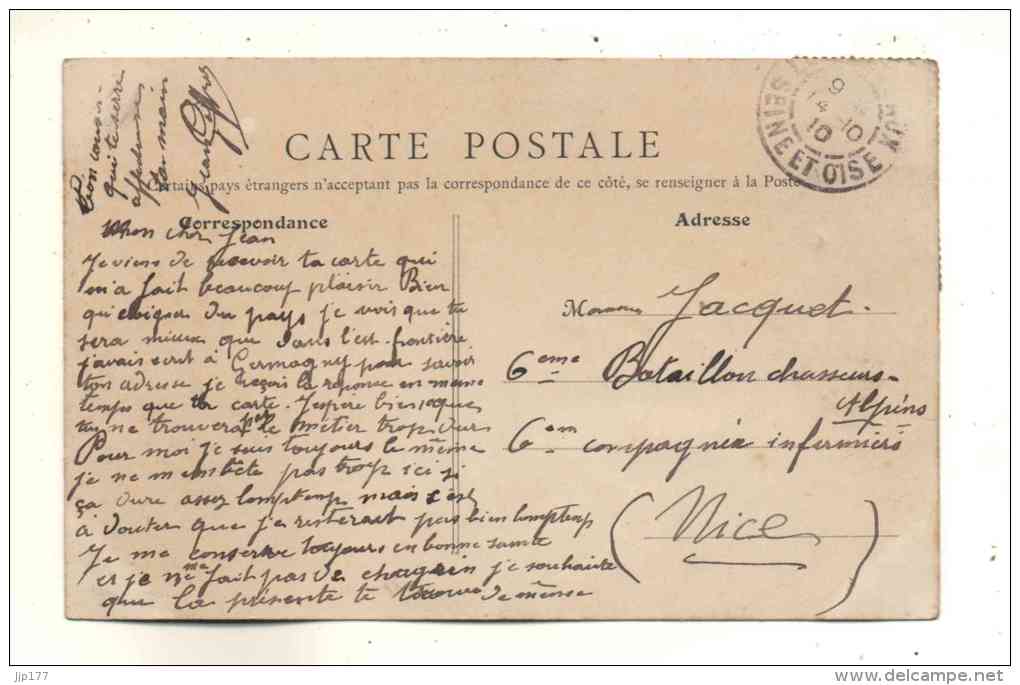 CARTE POSTALE
Certains pays étrangers n'acceptant pas la correspondance de ce côté, se renseigner à la Poste
Correspondance
Adresse
Mon cher Jean
Je viens de recevoir ta carte qui
m'a fait beaucoup plaisir Bien
qui du pays je vois que tu
sera mieux que dans l'est
j'avais ecrit à Germagny pour savoir
ton adresse je reçois la réponse en meme
temps que ta carte. J'espère bien que
tu ne trouveras pas le métier trop dur
Pour moi je suis toujours le même
je ne m'embête pas trop ici si
ça dure assez lomptemp mais c'est
à douter que j'a resterait pas bien lomptemp
Je me conserve toujours en bonne santé
et je ne me fait pas de chagrin je souhaite
que la présente te trouve de même
Ton cousin
qui te serre
la main
Jean
Monsieur Jacquet.
6eme Bataillon chasseurs
Alpins
6em compagnie infirmiers
(Nice)
SEINE ET OISE
9
14 10
10
jjp177
www.delcampe.net